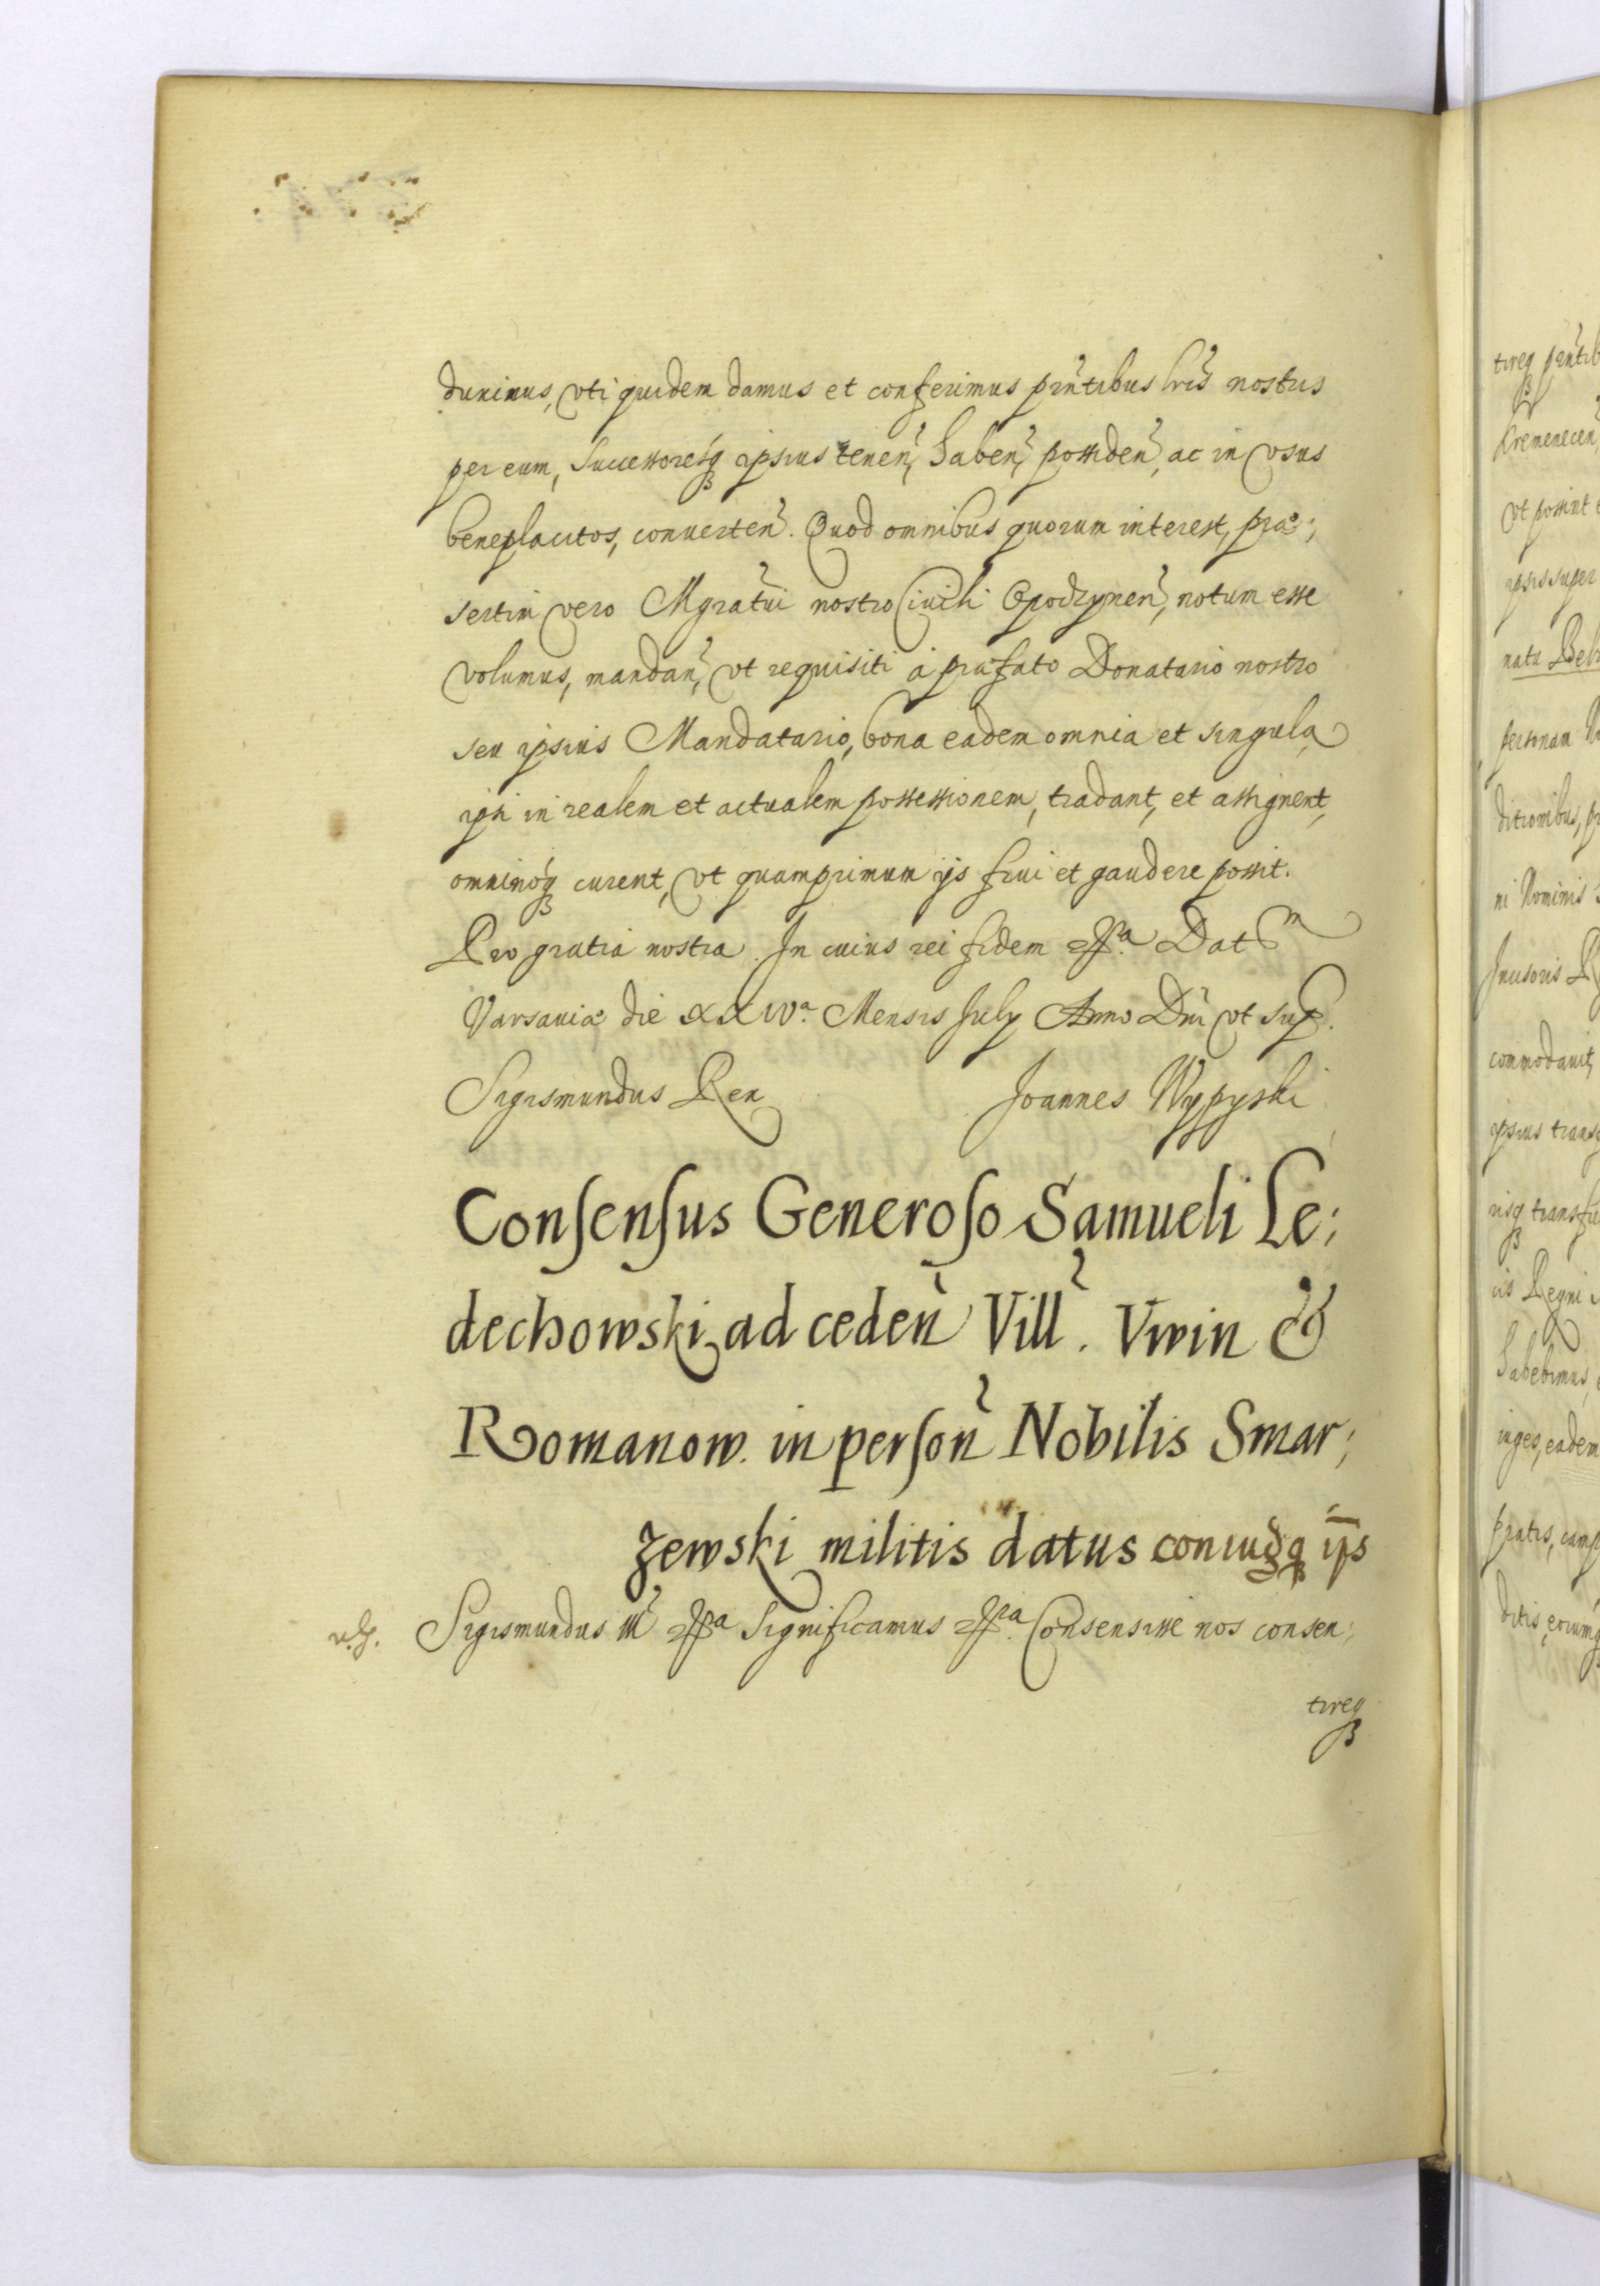 duximus, vti quidem damus et conferimus pñtibus lris nostris
per eum, Successoresq ipsius tenen, haben, possiden, ac in vsus
beneplacitos, conuerten. Quod omnibus quorum interest, præ;
sertim vero Mgratui nostro Ciuili Opodzynen, notum esse
volumus, mandan, vt requisiti á præfato Donatario nostro
seu ipsius Mandatario, bona eadem omnia et singula
ipsi in realem et actualem possessionem, tradant, et assignent,
omninoq curent, vt quamprimum ijs frui et gaudere possit.
Pro gratia nostra. In cuius rei fidem Dat
Varsauiæ die XXIVa. Mensis July Anno Dni vt sup.
Sigismundus Rex Joannes Wypyski
Consensus Generoso Samueli Le;
dechowski ad ceden Vill. Vwin &
Romanow. in person Nobilis Smar;
zewski militis datus coniugq ijs
Sigismundus III Significamus Consensisse nos consen;
tireq
tireq pñtib
Kremenecen
vt possint
ipsis super
nata Belz
personam
ditionibus, pr
ni Nominis
Incisoris
commodauit,
ipsius trans
risq transfu
cis Regni
habebimus,
iuges, eadem
pratis, camp
ditis eorumq